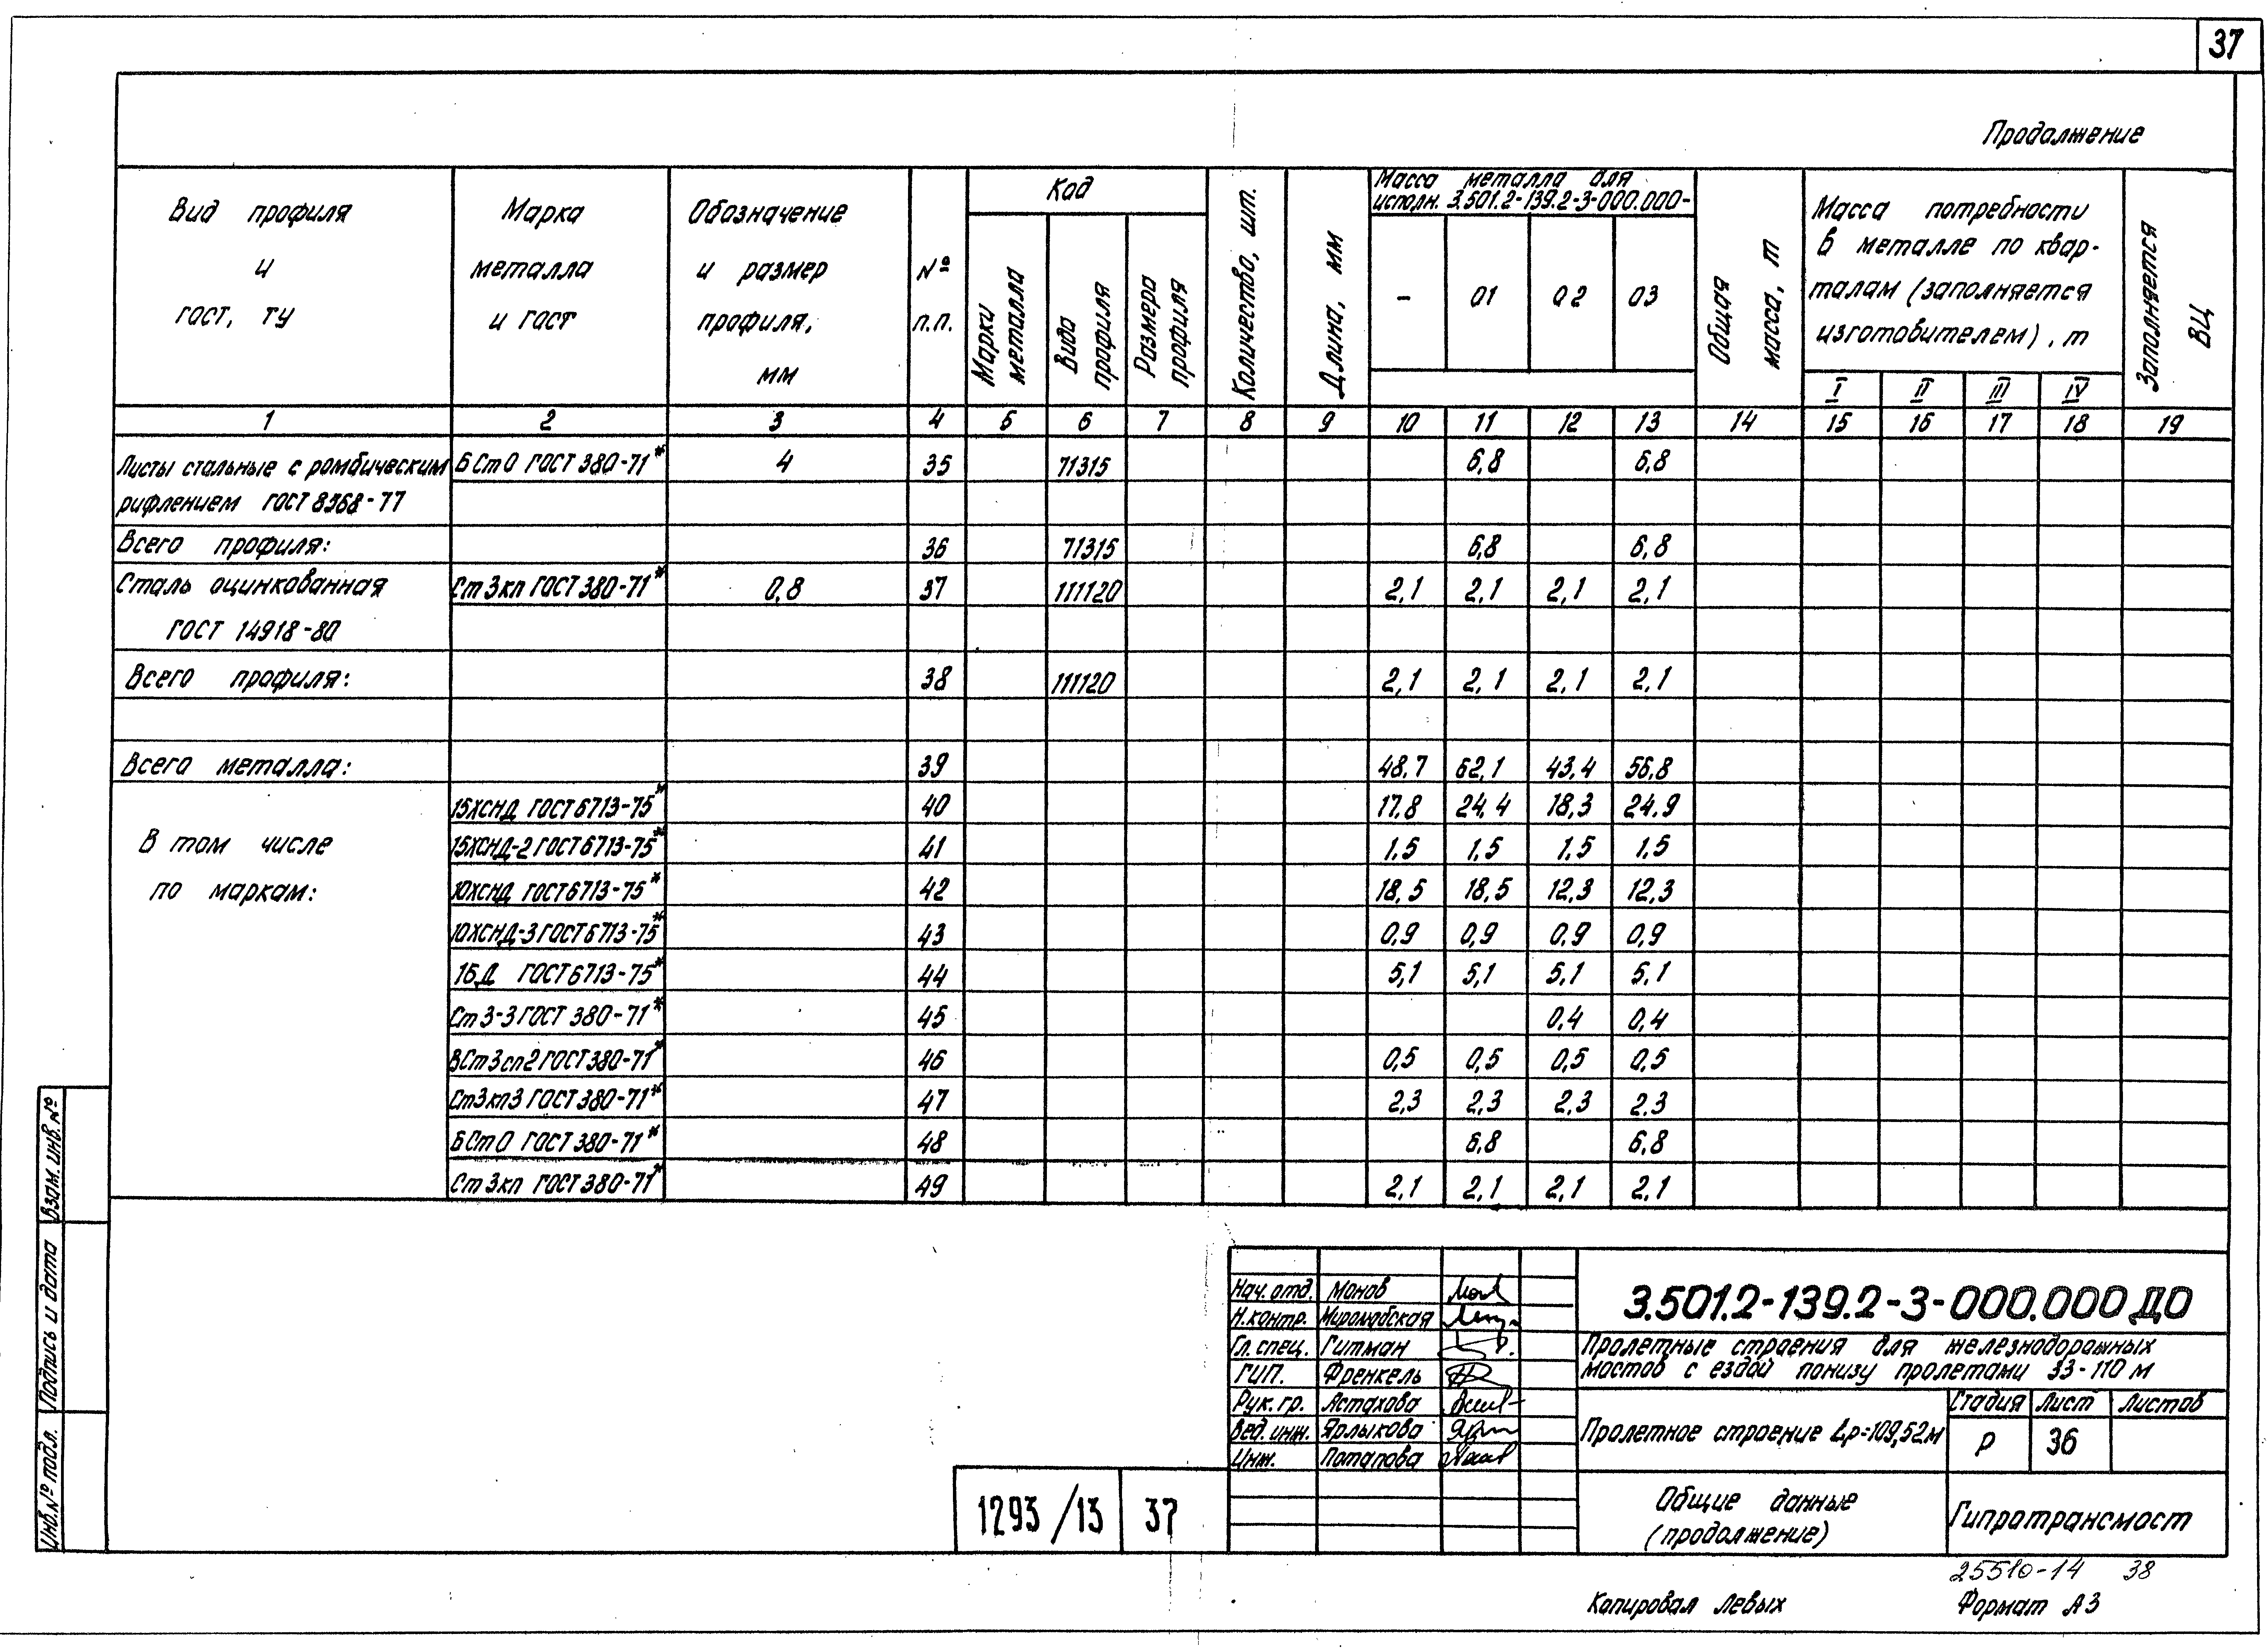 37
Продолжение
Вид профиля и ГОСТ, ТУ
Марка металла и ГОСТ
Обозначение и размер профиля, мм
№ п.п.
Код
Марки металла
Вида профиля
Размера профиля
Количество, шт.
Длина, мм
Масса металла для
исполн. 3.501.2-139.2-3-000.000-
- 01 02 03
Общая масса, т
Масса потребности
в металле по квар-
талам (заполняется
изготовителем), т
I II III IV
Заполняется ВЦ
1 2 3 4 5 6 7 8 9 10 11 12 13 14 15 16 17 18 19
Листы стальные с ромбическим БСт0 ГОСТ 380-71* 4 35 71315 6,8 6,8
рифлением ГОСТ 8568-77
Всего профиля: 36 71315 6,8 6,8
Сталь оцинкованная Ст3кп ГОСТ 380-71* 0,8 37 111120 2,1 2,1 2,1 2,1
ГОСТ 14918-80
Всего профиля: 38 111120 2,1 2,1 2,1 2,1
Всего металла: 39 48,7 62,1 43,4 56,8
15ХСНД ГОСТ 6713-75* 40 17,8 24,4 18,3 24,9
В том числе 15ХСНД-2 ГОСТ 6713-75* 41 1,5 1,5 1,5 1,5
по маркам: 10ХСНД ГОСТ 6713-75* 42 18,5 18,5 12,3 12,3
10ХСНД-3 ГОСТ 6713-75* 43 0,9 0,9 0,9 0,9
16Д ГОСТ 6713-75* 44 5,1 5,1 5,1 5,1
Ст3-3 ГОСТ 380-71* 45 0,4 0,4
ВСт3сп2 ГОСТ 380-71* 46 0,5 0,5 0,5 0,5
Ст3кп3 ГОСТ 380-71* 47 2,3 2,3 2,3 2,3
БСт0 ГОСТ 380-71* 48 6,8 6,8
Ст3кп ГОСТ 380-71* 49 2,1 2,1 2,1 2,1
Взам. инв. №
Подпись и дата
Инв. № подл.
Нач. отд. Монов
Н. контр. Миролюбская
Гл. спец. Гитман
ГИП. Френкель
Рук. гр. Астахова
Вед. инж. Ярлыкова
Инж. Потапова
3.501.2-139.2-3-000.000 ДО
Пролетные строения для железнодорожных
мостов с ездой понизу пролетами 33-110 м
Пролетное строение Lр=109,52м
Стадия Лист Листов
Р 36
Общие данные
(продолжение)
Гипротрансмост
1293/13 37
25510-14 38
Копировал Левых Формат А3